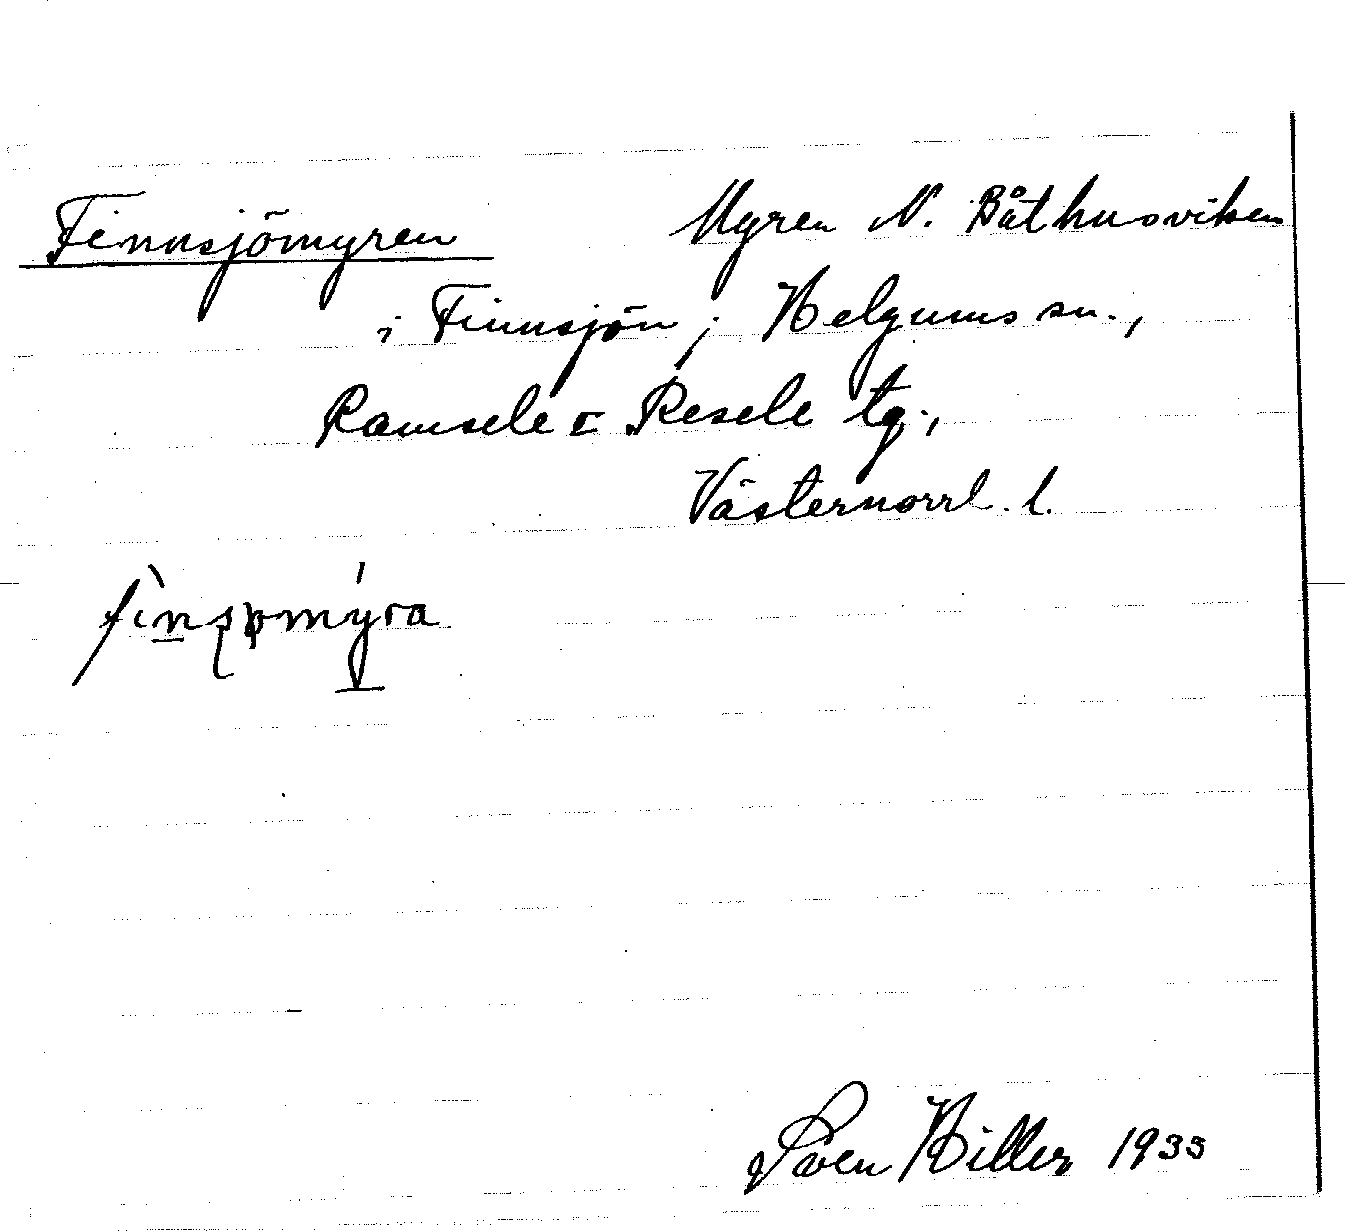 Finnsjömyren Myren N. Båthusviken
i Finnsjön; Helgums sn.,
Ramsele o Resele tg.,
Västernorrl. l.
Sven Hiller 1933